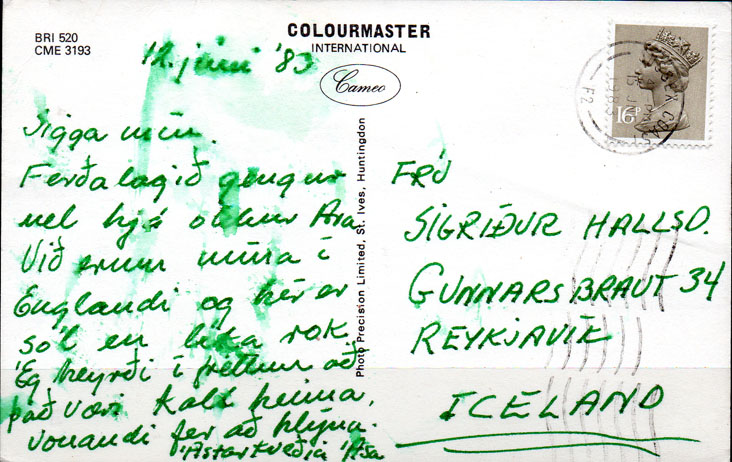 BRI 520
CME 3193
COLOURMASTER
INTERNATIONAL
Cameo
12. júní '83
Sigga mín.
Ferðalagið gengur
vel hjá okkur Ara
Við erum núna í
Englandi og hér er
sól en líka rok.
Ég heyrði í fréttum að
það væri kalt heima,
vonandi fer að hlýna.
Ástarkveðja Ása
Photo Precision Limited, St. Ives, Huntingdon
16P
F2
FRÚ
SIGRÍÐUR HALLSD.
GUNNARSBRAUT 34
REYKJAVÍK
ICELAND